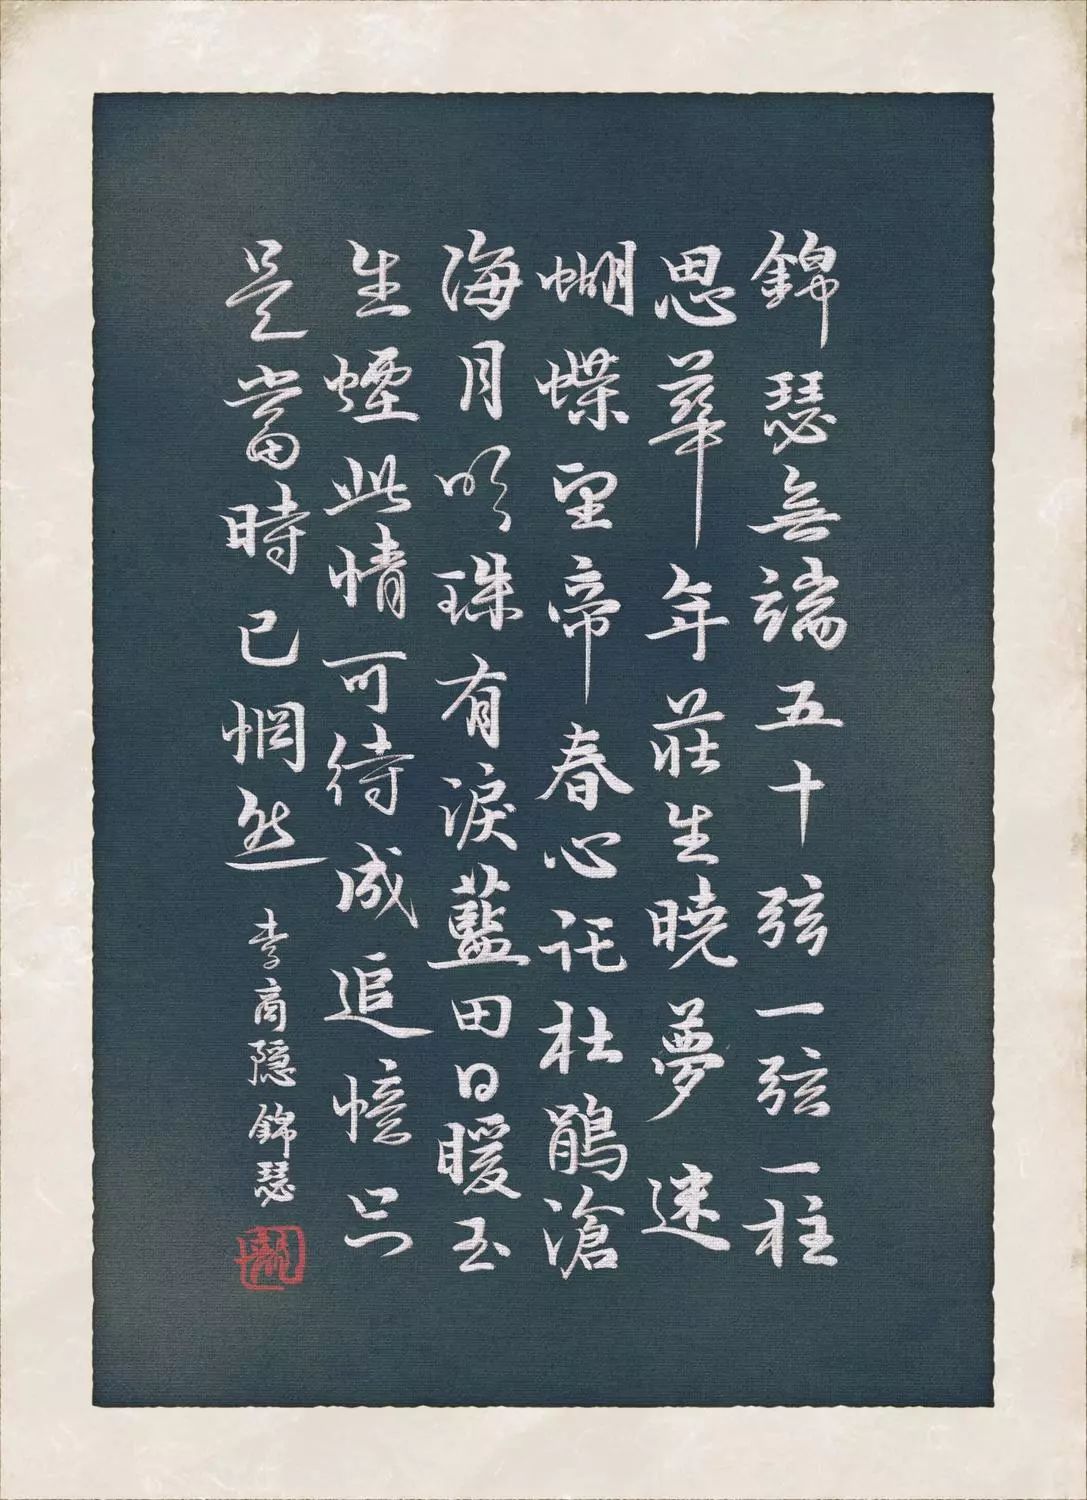 錦瑟無端五十弦一弦一柱
思華年莊生曉夢迷
蝴蝶望帝春心託杜鵑滄
海月明珠有淚藍田日暖玉
生煙此情可待成追憶只
是當時已惘然
李商隱錦瑟